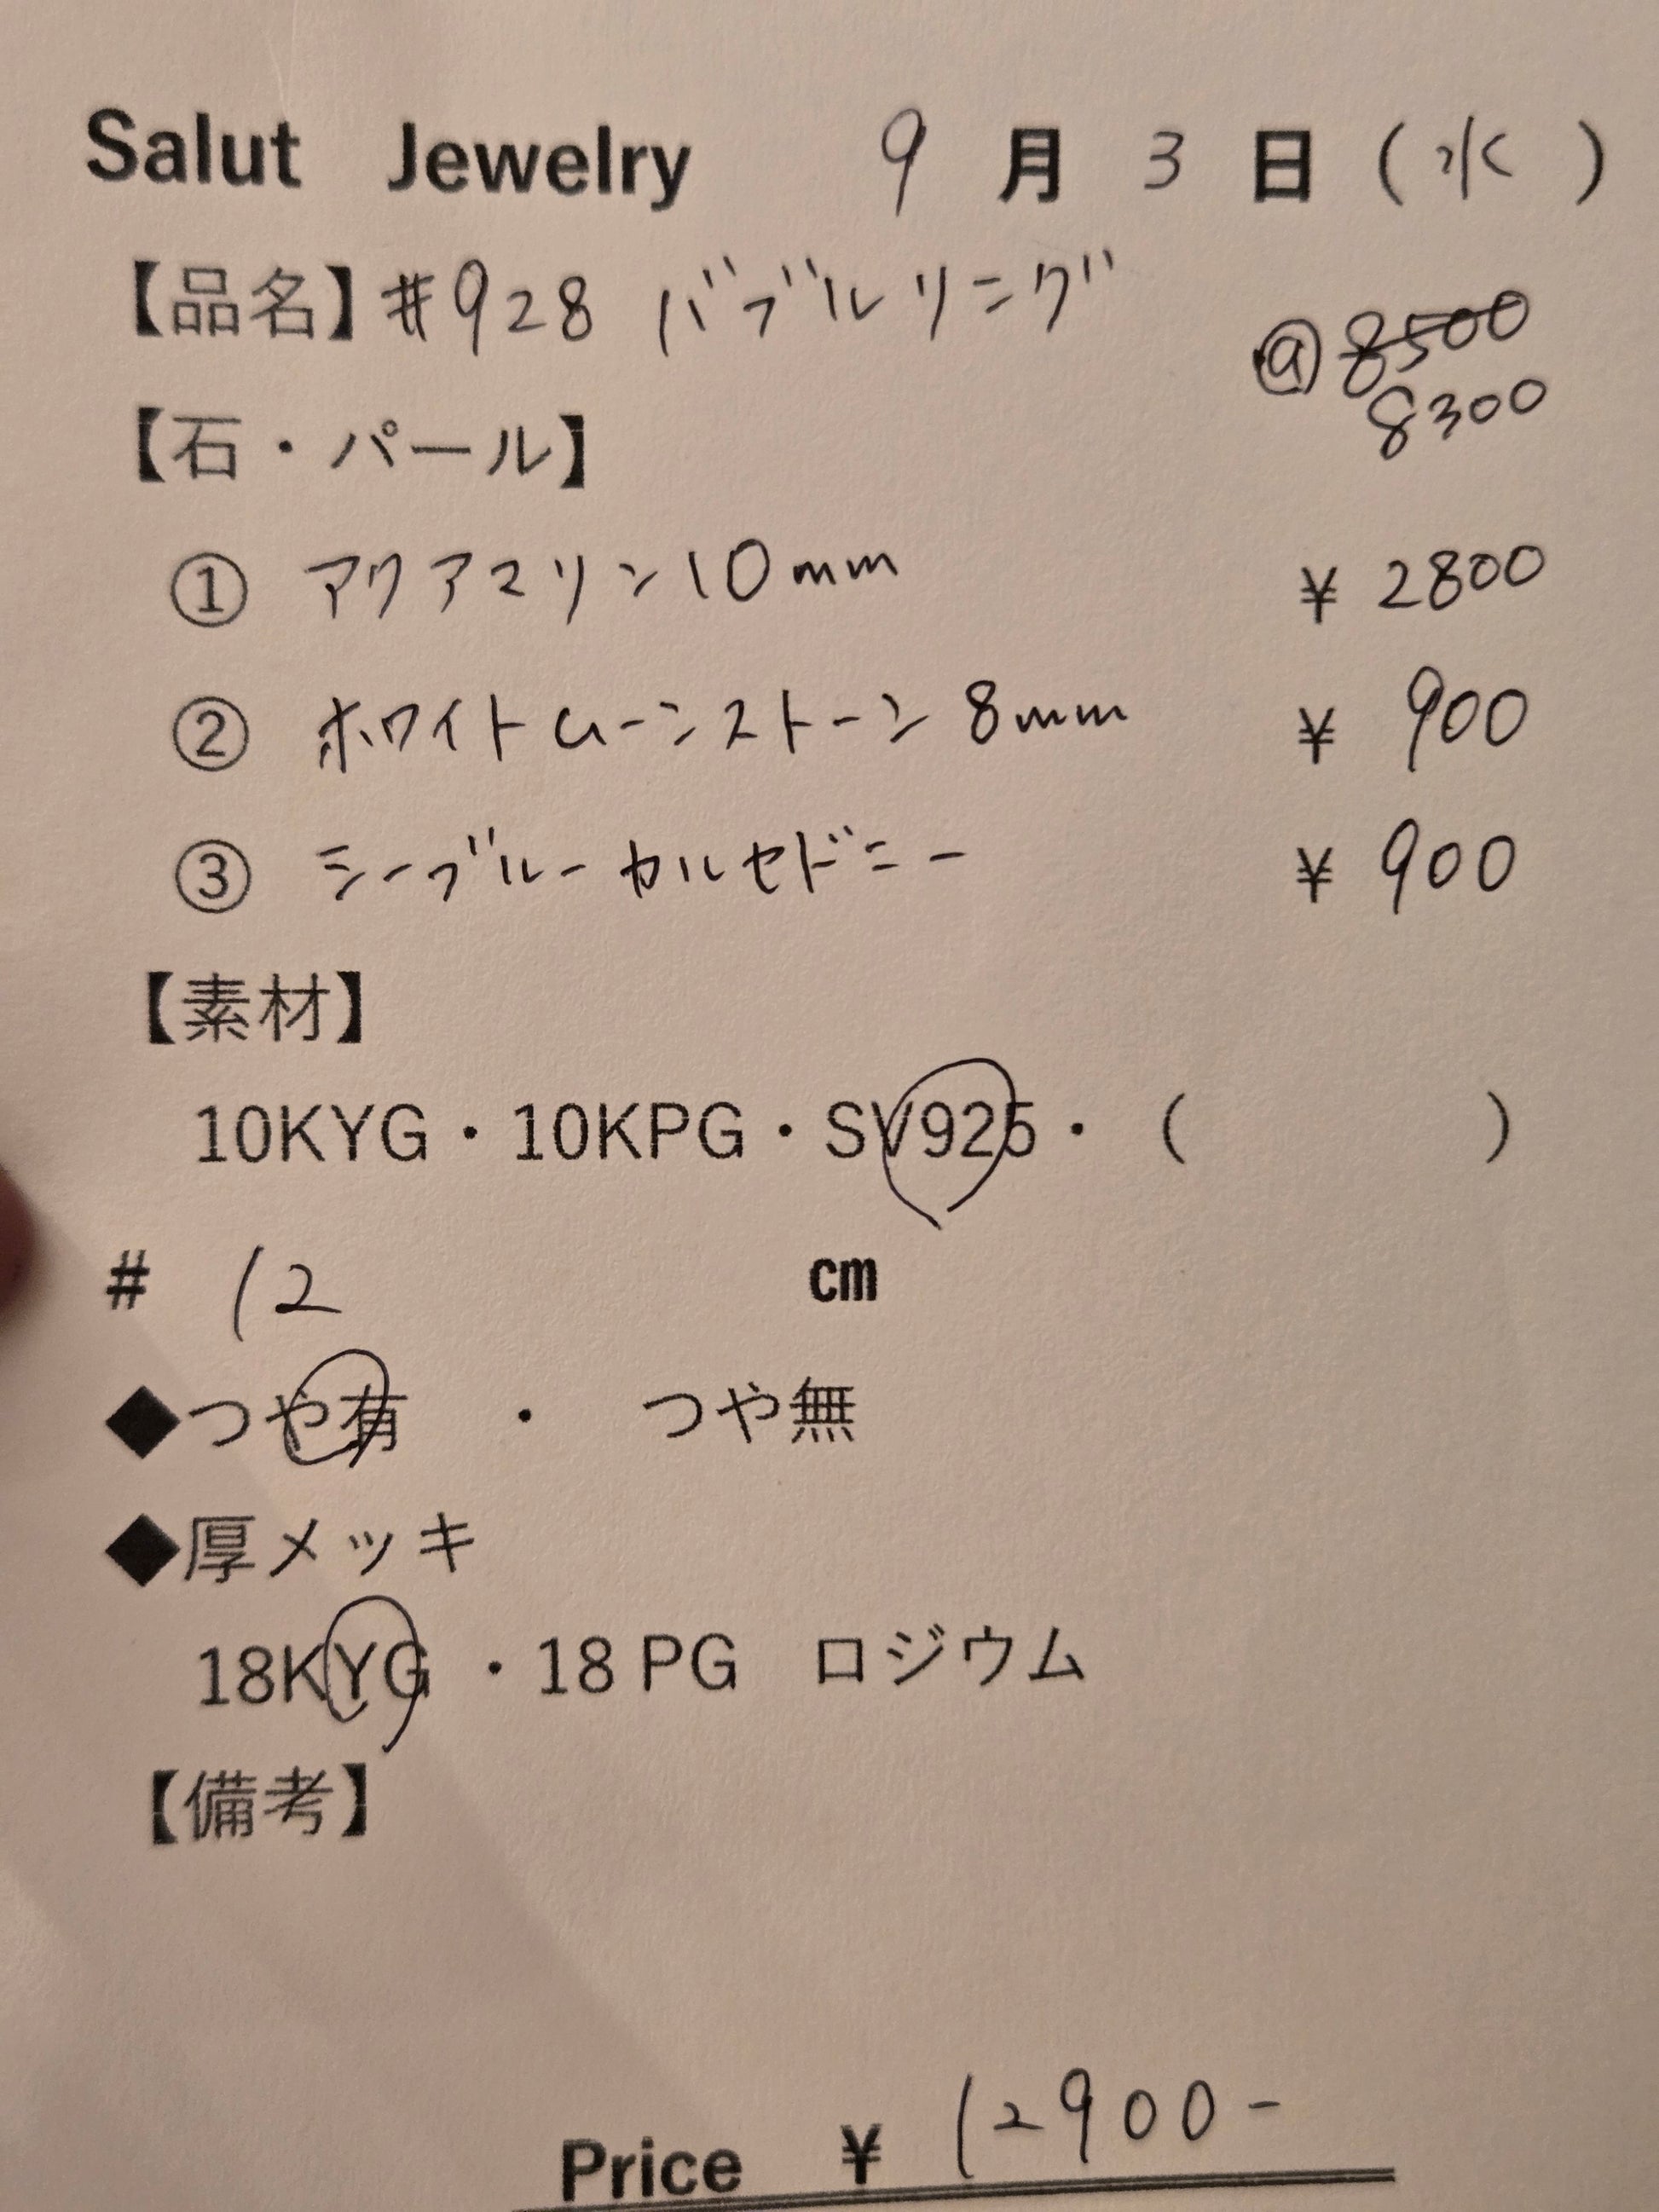 Salut Jewelry 9月3日(水)
【品名】#928 バブルリング
@ 8500
8300
【石・パール】
① アクアマリン10mm ¥2800
② ホワイトムーンストーン 8mm ¥900
③ シーブルーカルセドニー ¥900
【素材】
10KYG・10KPG・SV925・( )
# 12 cm
◆つや有 ・ つや無
◆厚メッキ
18KYG ・18 PG ロジウム
【備考】
Price ¥ 12900-